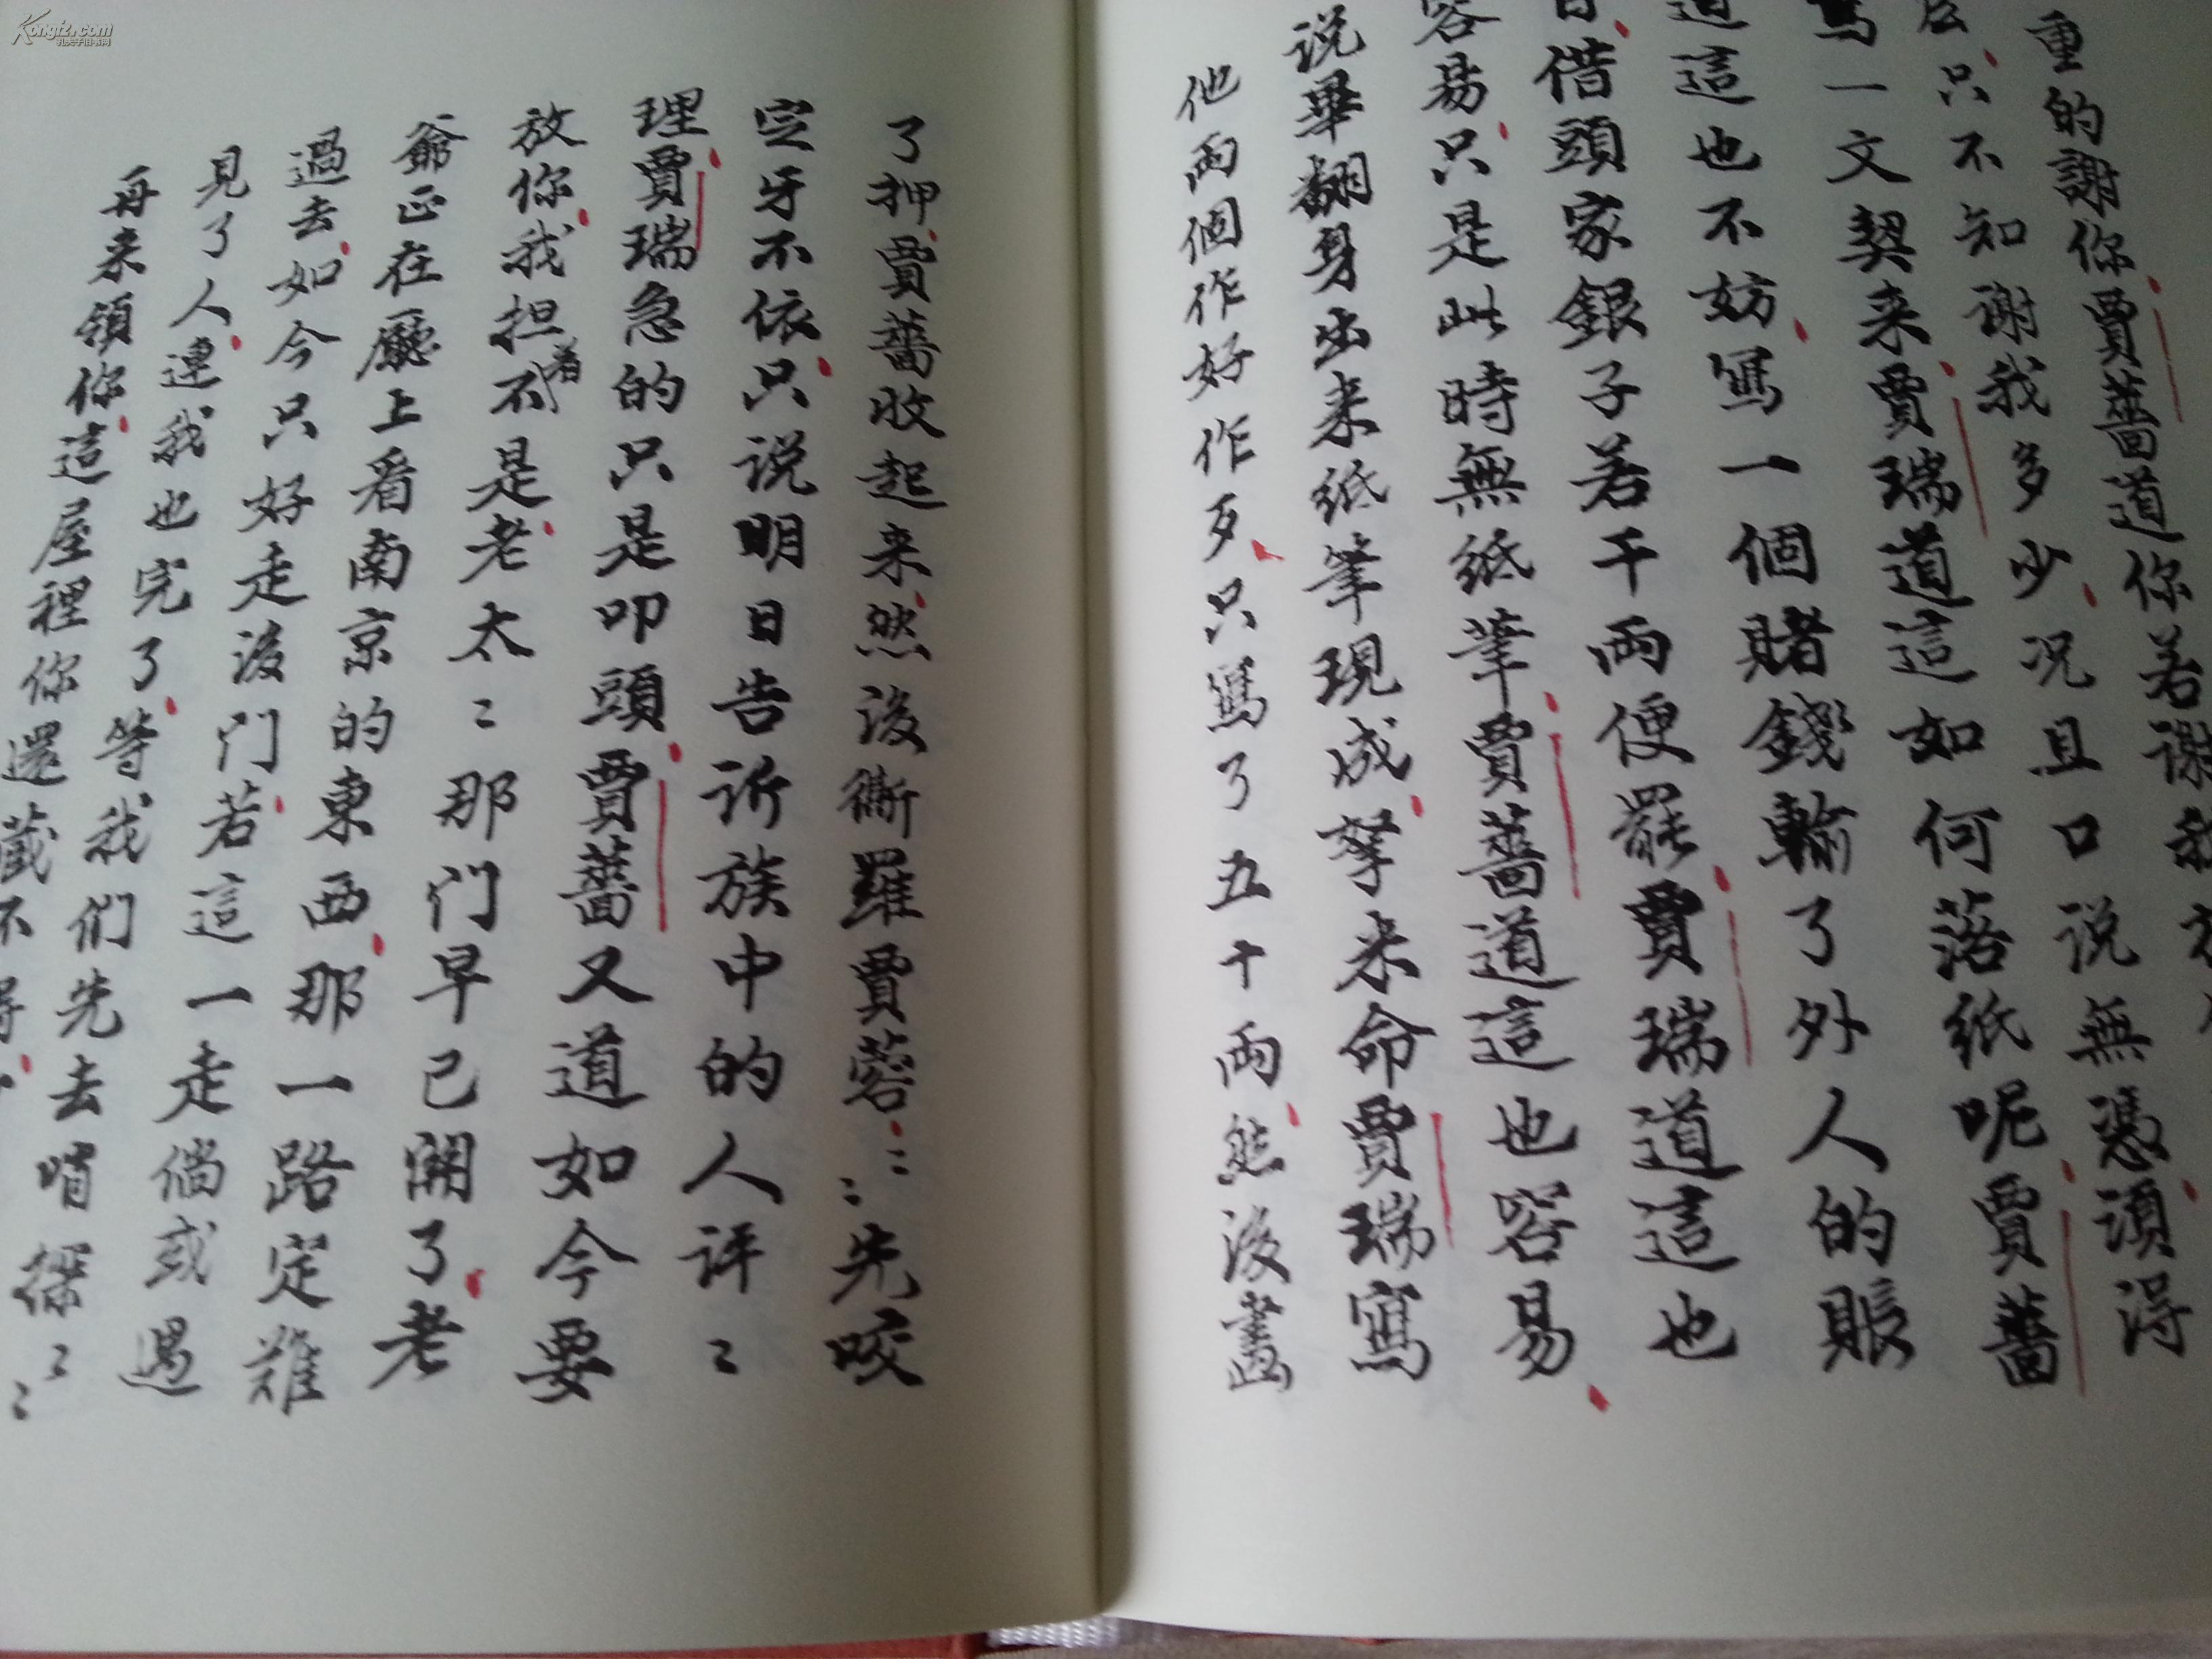 Kongfz.com
孔夫子旧书网
重的謝你賈薔道你若謝我
只不知謝我多少况且口说無憑須得
寫一文契来賈瑞道這如何落纸呢賈薔
道這也不妨寫一個賭錢輸了外人的賬
借頭家銀子若干兩便罷賈瑞道這也
容易只是此時無纸筆賈薔道這也容易
说畢翻身出来纸筆現成拏来命賈瑞寫
他兩個作好作歹只寫了五十兩然後畫
了押賈薔收起来然後撕羅賈蓉〻〻先咬
定牙不依只说明日告訴族中的人評〻
理賈瑞急的只是叩頭賈薔又道如今要
放你我担着不是老太〻那门早已関了老
爺正在廳上看南京的東西那一路定難
過去如今只好走後门若這一走倘或遇
見了人連我也完了等我们先去哨探〻〻
再来領你這屋裡你還藏不得